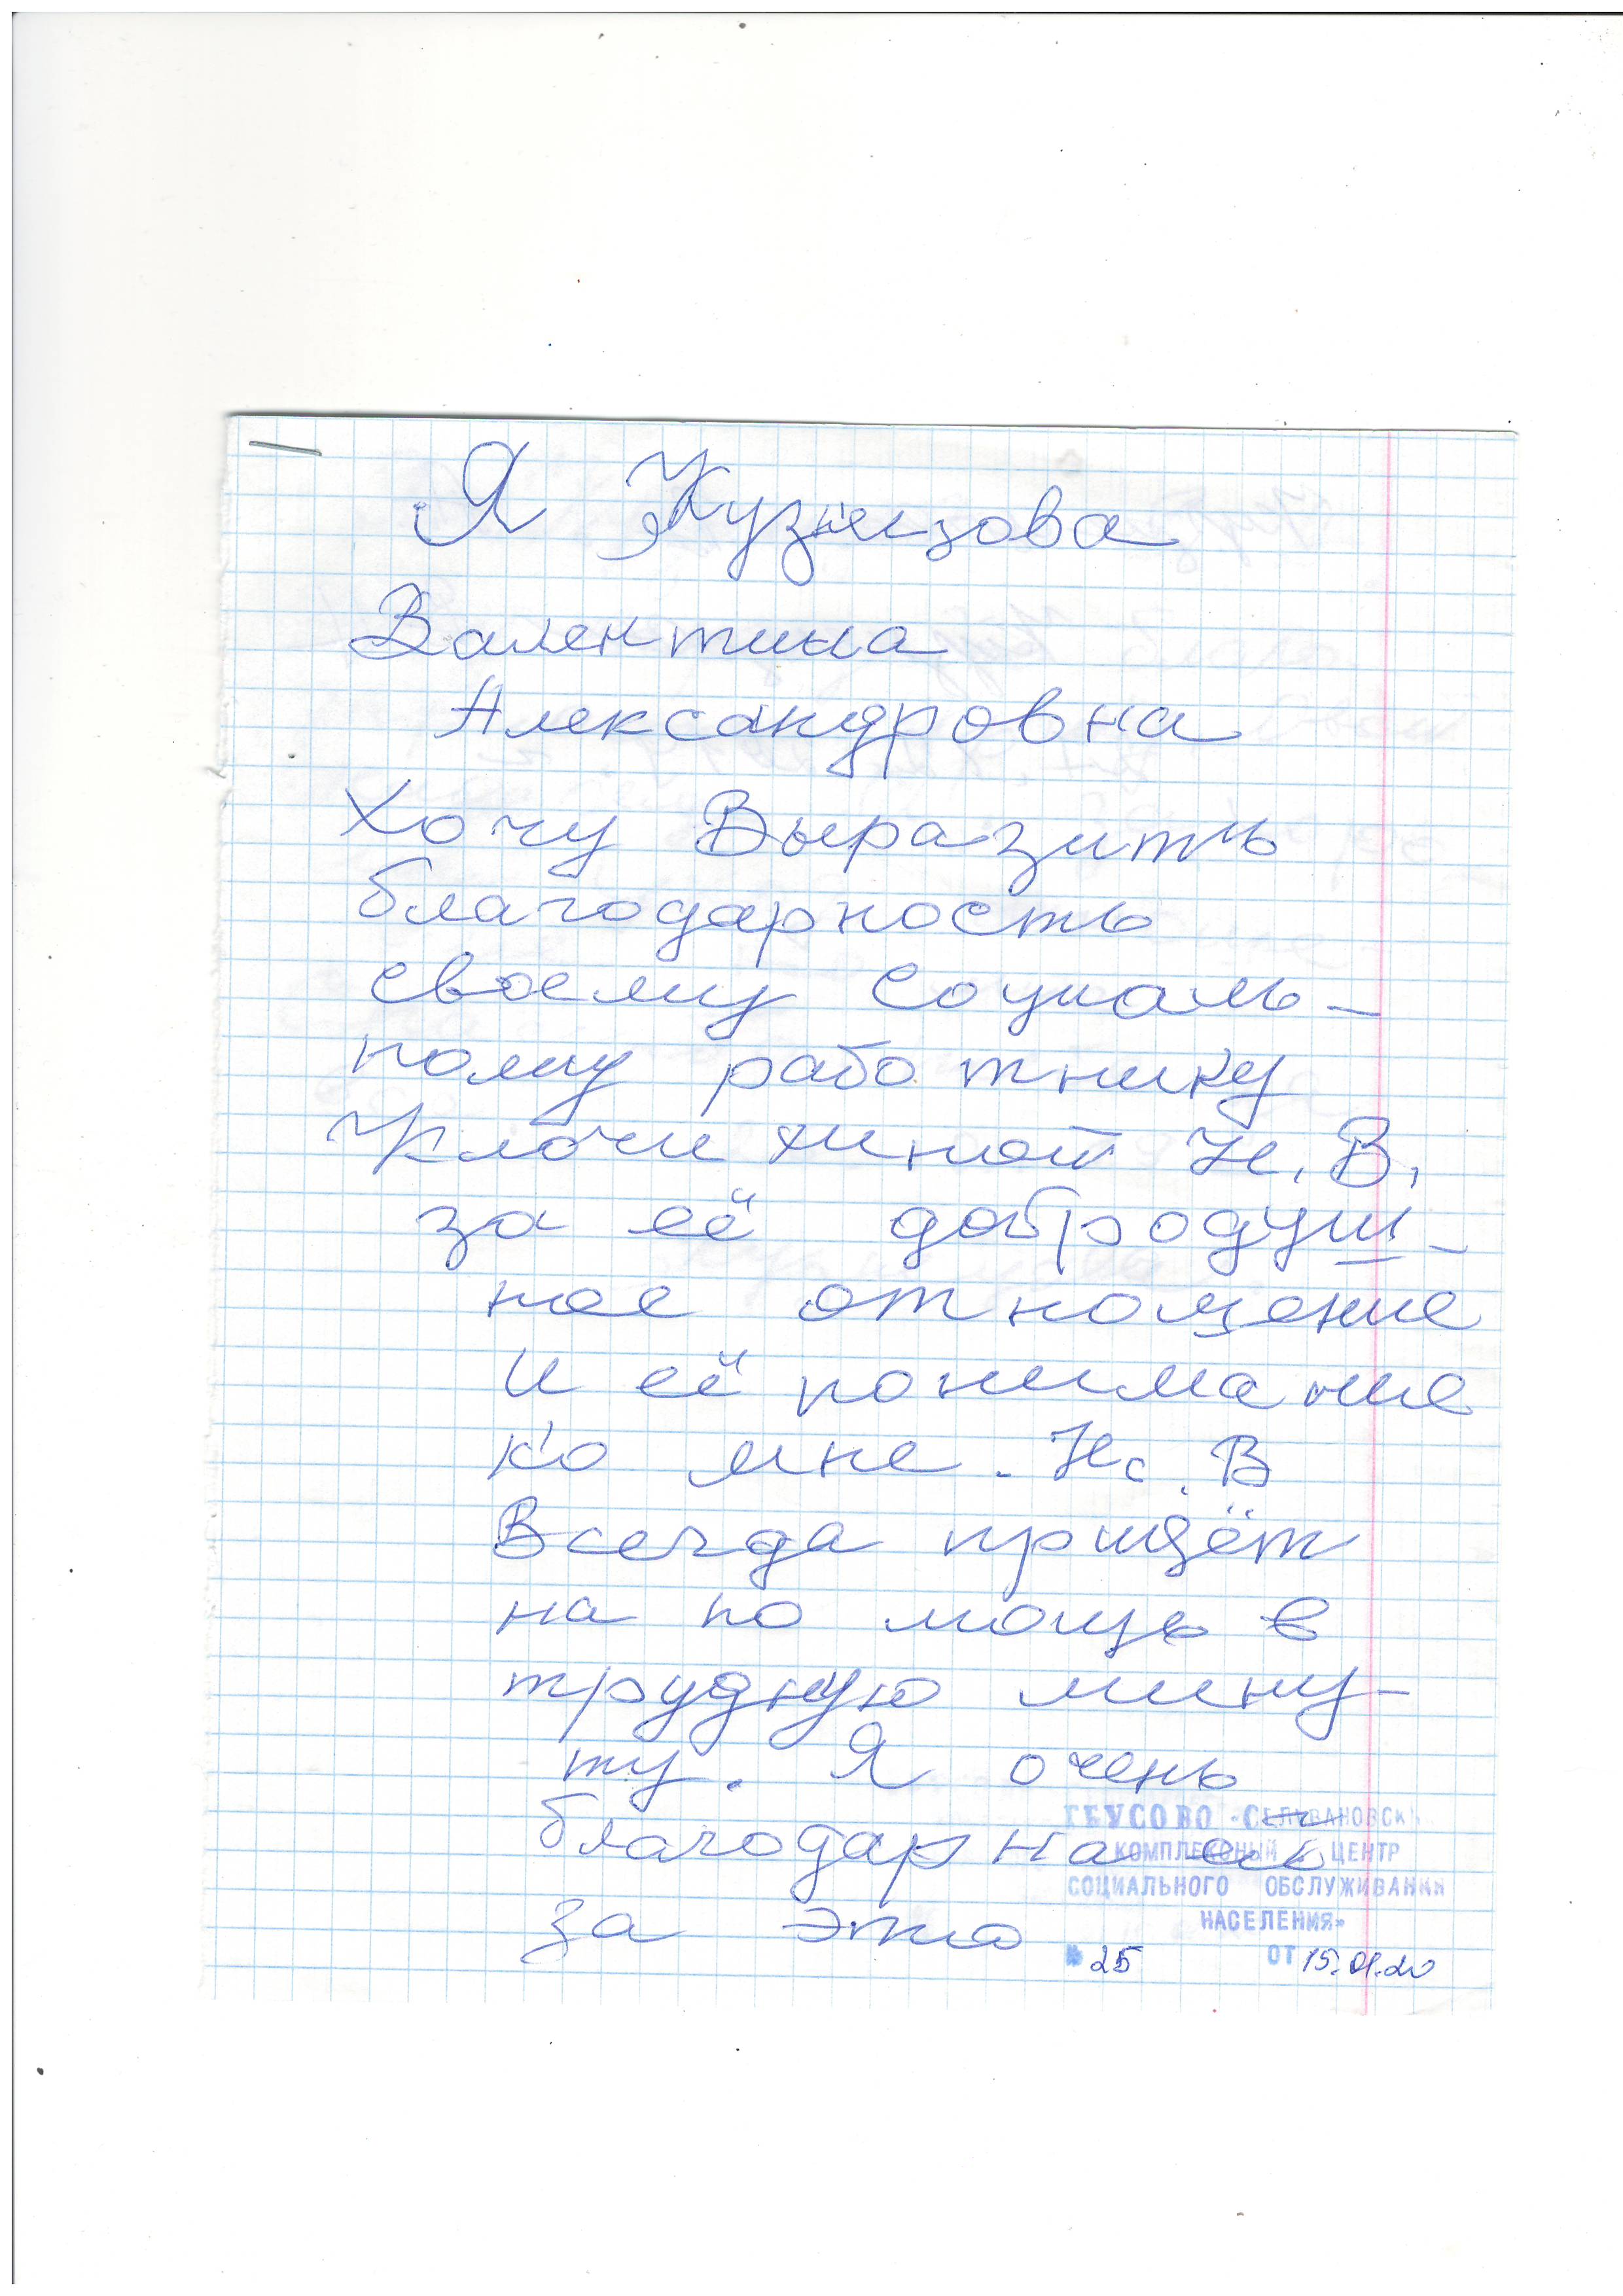 Я Кузнецова
Валентина
Александровна
Хочу Выразить
благодарность
своему Социаль-
ному работнику
Н. В.
за её добродуш-
ное отношение
и её понимание
ко мне. Н. В
Всегда придёт
на помощь в
трудную мину-
ту. Я очень
благодарна ей
за это
ГБУСОВО «СЕЛИВАНОВСК
КОМПЛЕКСНЫЙ ЦЕНТР
СОЦИАЛЬНОГО ОБСЛУЖИВАНИЯ
НАСЕЛЕНИЯ»
№ 25 от 15.01.20